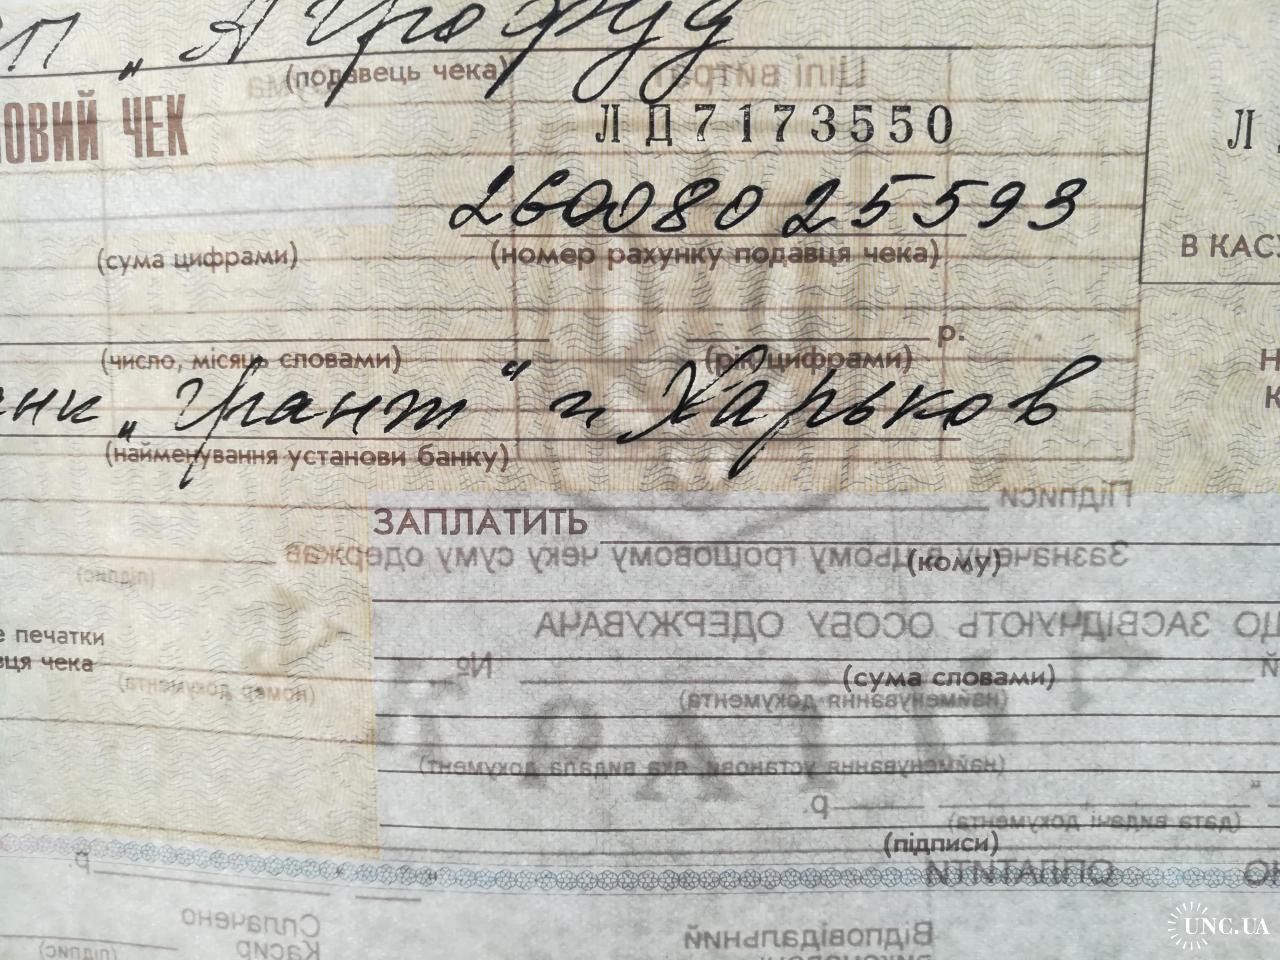 „Агрофуд
(подавець чека)
ЧЕК
ЛД7173550
Л
26008025593
(сума цифрами)
(номер рахунку подавця чека)
В КАС
р.
(число, місяць словами)
(рік цифрами)
„Грант“ г. Харьков
(найменування установи банку)
Підписи
ЗАПЛАТИТЬ
(кому)
Зазначену в цьому грошовому чеку суму одержав
(підпис)
ЩО ЗАСВІДЧУЮТЬ ОСОБУ ОДЕРЖУВАЧА
печатки
чека
№
(сума словами)
(номер документа)
(найменування документа)
УКРАЇНА
(найменування установи, яка видала документ)
р.
(дата видачі документа)
(підписи)
ОПЛАТИТИ
р
Сплачено
Касир
Відповідальний
(підпис)
UNC.UA